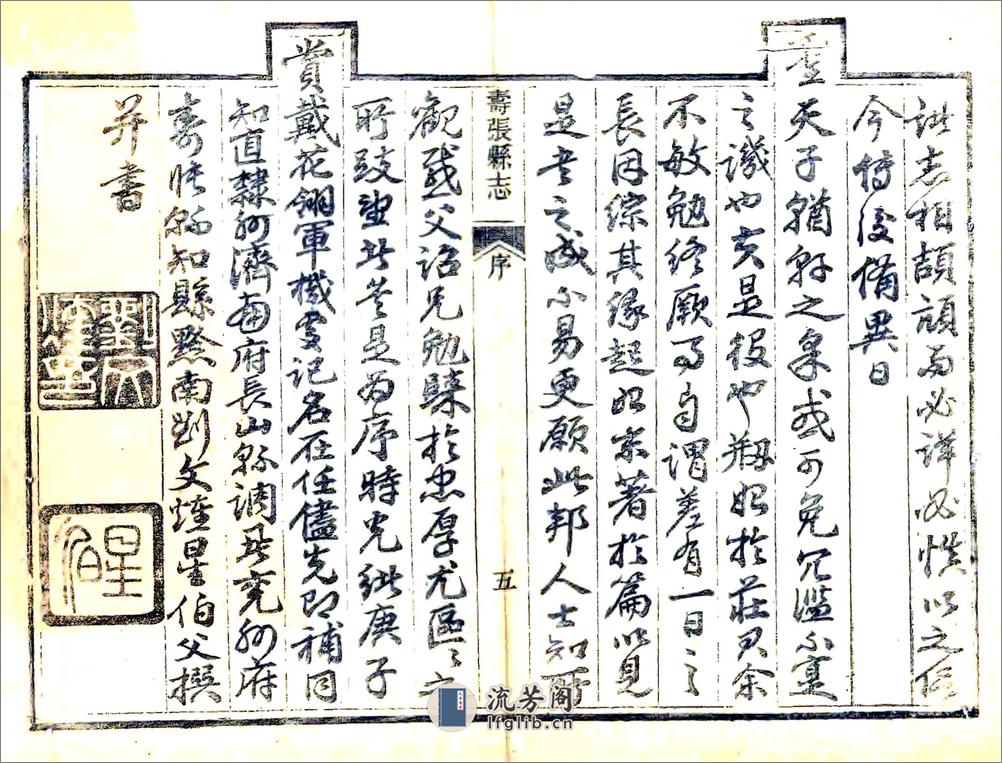 此志相頡頏而必詳必慎以之信
今傳後備異日
聖天子輶軒之采或可免冗濫不寔
之譏也夫是役也創始於莊君余
不敏勉終厥事自謂差有一日之
長因綜其緣起如末著於篇以見
是書之成不易更願此邦人士知所
壽張縣志
序
五
觀感父詔兄勉隸於忠厚尤區之
所跂望者焉是為序時光緒庚子
賞戴花翎軍機處記名在任儘先即補同
知直隸州濟南府長山縣調署兗州府
壽張縣知縣黔南劉文煃星伯父撰
并書
劉文煃
星伯
流芳阁
lfglib.cn